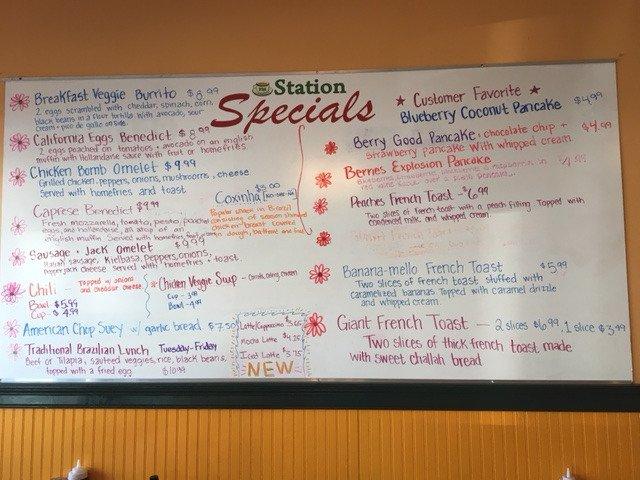 Station
Specials
Breakfast Veggie Burrito $8.99
2 eggs scrambled with cheddar, spinach, corn,
black beans in a flour tortilla. With avocado, sour
cream + pico de gallo on side
California Eggs Benedict $8.99
2 eggs poached on tomatoes + avocado on an english
muffin with Hollandaise sauce with fruit or homefries
Chicken Bomb Omelet $9.99
Grilled chicken, peppers, onions, mushrooms, cheese
Served with homefries and toast
Coxinha $5.00
Popular snack in Brazil
consisting of season shredded
chicken breast covered
in dough, battered and fried
Caprese Benedict $9.99
Fresh mozzarella, tomato, pesto, poached
eggs, and hollandaise, all atop of an
english muffin. Served with homefries
Sausage + Jack Omelet $9.99
sausage, Kielbasa, Peppers, onions,
Pepperjack cheese served with homefries + toast
Chili - Topped w/ onions
and cheddar cheese
Bowl $5.99
Cup - $4.99
Chicken Veggie Soup - Carrots, celery, chicken
Cup - 3.99
Bowl - 4.99
American Chop Suey w/ garlic bread $7.50
Traditional Brazilian Lunch Tuesday-Friday
Beef or Tilapia, sautéed veggies, rice, black beans,
topped with a fried egg $10.99
Latte/Cappuccino
Mocha Latte $4.25
Iced Latte $3.75
NEW
★ Customer Favorite ★
Blueberry Coconut Pancake $4.99
Berry Good Pancake: chocolate chip + $4.99
Strawberry pancake with whipped cream
Berries Explosion Pancake
Peaches French Toast - $6.99
Two slices of french toast with a peach filling Topped with
condensed milk and whipped cream
Banana-mello French Toast $5.99
Two slices of french toast stuffed with
caramelized bananas Topped with caramel drizzle
and whipped cream
Giant French Toast - 2 slices $6.99, 1 slice $3.99
Two slices of thick french toast made
with sweet challah bread